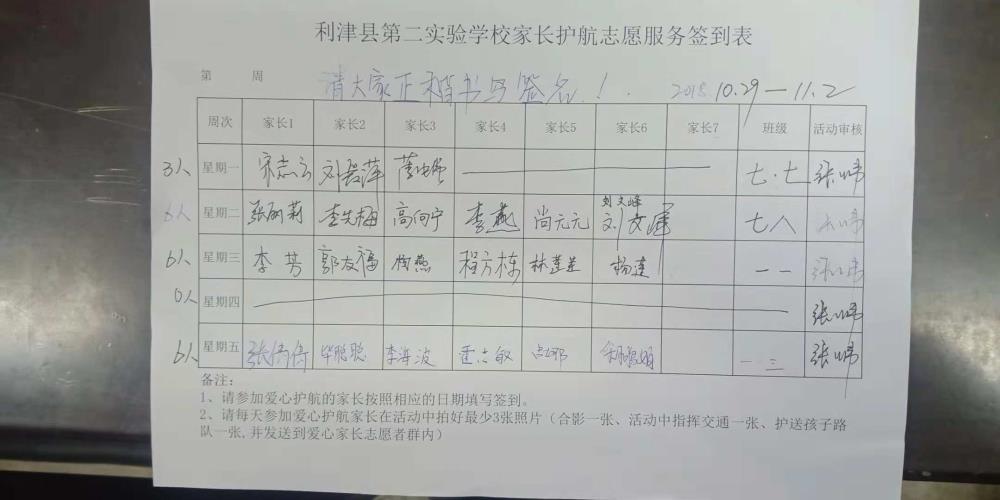 利津县第二实验学校家长护航志愿服务签到表
第 周 请大家正楷书写签名！ 2018.10.29—11.2
周次 家长1 家长2 家长3 家长4 家长5 家长6 家长7 班级 活动审核
3人 星期一 宋志云 七.七 张
刘文峰
6人 星期二 张丽莉 高向宁 李燕 尚元元 刘文峰 七八
6人 星期三 李芳 郭友福 梅燕 程方栋 杨莲 一一 张
0人 星期四 张
6人 星期五 张倩倩 毕聪聪 李海波 一三 张
备注：
1、请参加爱心护航的家长按照相应的日期填写签到。
2、请每天参加爱心护航家长在活动中拍好最少3张照片（合影一张、活动中指挥交通一张、护送孩子路
队一张,并发送到爱心家长志愿者群内）